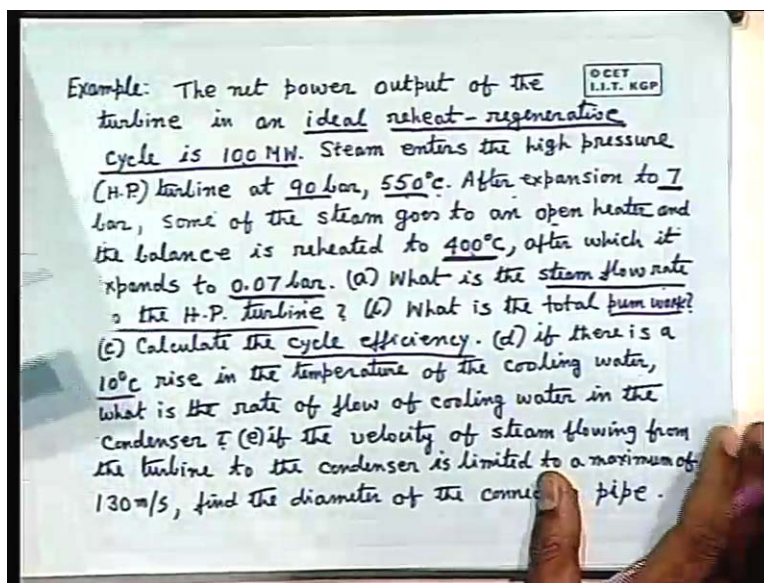 Example: The net power output of the
© CET
I.I.T. KGP
turbine in an ideal reheat-regenerative
cycle is 100 MW. Steam enters the high pressure
(H.P.) turbine at 90 bar, 550°C. After expansion to 7
bar, some of the steam goes to an open heater and
the balance is reheated to 400°C, after which it
xpands to 0.07 bar. (a) What is the steam flow rate
o the H.P. turbine? (b) What is the total pum work?
(c) Calculate the cycle efficiency. (d) if there is a
10°C rise in the temperature of the cooling water,
what is the rate of flow of cooling water in the
Condenser? (e) if the velocity of steam flowing from
the turbine to the condenser is limited to a maximum of
130 m/s, find the diameter of the pipe.